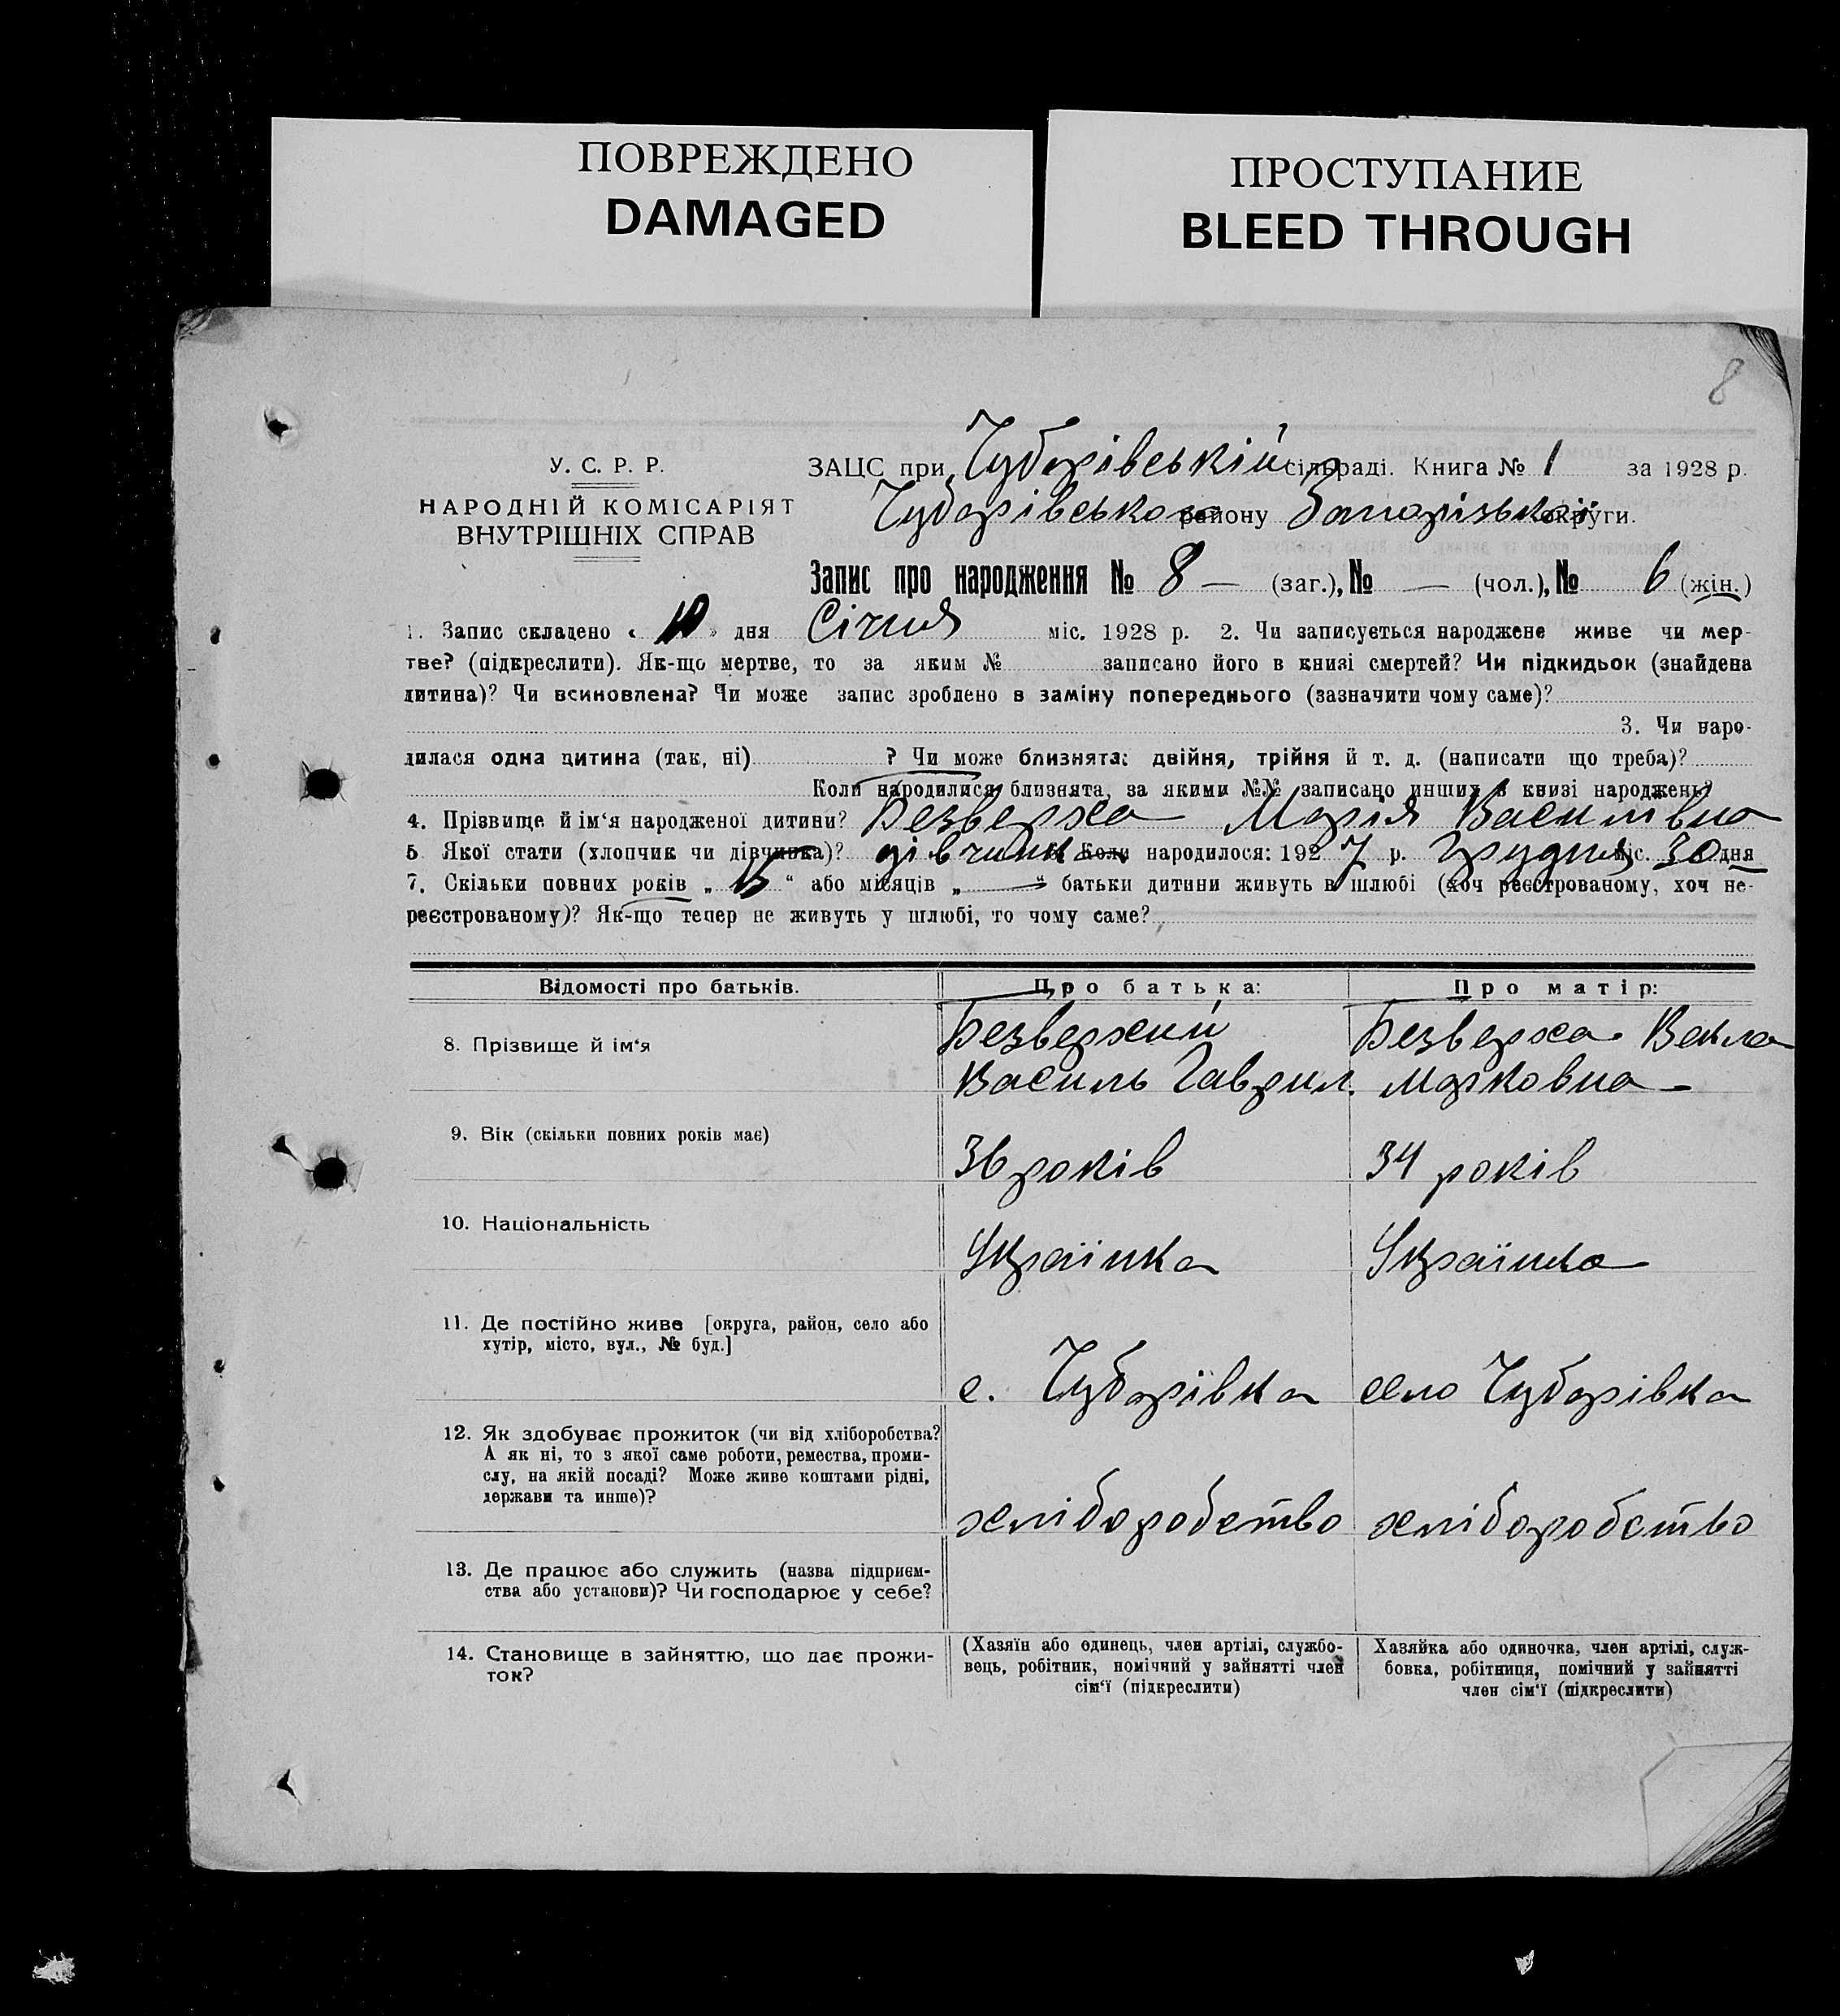 ПОВРЕЖДЕНО
DAMAGED
ПРОСТУПАНИЕ
BLEED THROUGH
8
У. С. Р. Р.
НАРОДНІЙ КОМІСАРІЯТ
ВНУТРІШНІХ СПРАВ
ЗАЦС при Чубарівській сільраді. Книга № 1 за 1928 р.
Чубарівського району Запорізької округи.
Запис про народження № 8 — (заг.), № — (чол.), № 6 (жін.)
1. Запис складено « 10 » дня Січня міс. 1928 р. 2. Чи записується народжене живе чи мер-
тве? (підкреслити). Як-що мертве, то за яким № записано його в книзі смертей? Чи підкидьок (знайдена
дитина)? Чи всиновлена? Чи може запис зроблено в заміну попереднього (зазначити чому саме)?
3. Чи наро-
дилася одна дитина (так, ні) ? Чи може близнята: двійня, трійня й т. д. (написати що треба)?
Коли народилися близнята, за якими №№ записано инших в книзі народжень?
4. Прізвище й ім‘я народженої дитини? Безверха Марія Василівна
5 Якої стати (хлопчик чи дівчинка)? дівчинка Коли народилося: 1927 р. Грудня міс. 30 дня
7. Скільки повних років „ 15 “ або місяців „ — “ батьки дитини живуть в шлюбі (хоч реєстрованому, хоч не-
реєстрованому)? Як-що тепер не живуть у шлюбі, то чому саме?
Відомості про батьків. Про батька: Про матір:
8. Прізвище й ім‘я
Безверхий
Василь Гаврил.
Безверха Векла
Марковна —
9. Вік (скільки повних років має)
36 років
34 років
10. Національність
Українка
Українка
11. Де постійно живе [округа, район, село або
хутір, місто, вул., № буд.]
с. Чубарівка
село Чубарівка
12. Як здобуває прожиток (чи від хліборобства?
А як ні, то з якої саме роботи, ремества, проми-
слу, на якій посаді? Може живе коштами рідні,
держави та инше)?
хліборобство
хліборобство
13. Де працює або служить (назва підприєм-
ства або установи)? Чи господарює у себе?
14. Становище в зайняттю, що дає прожи-
ток?
(Хазяїн або одинець, член артілі, службо-
вець, робітник, помічний у зайнятті член
сім‘ї (підкреслити)
Хазяйка або одиночка, член артілі, служ-
бовка, робітниця, помічний у зайнятті
член сім‘ї (підкреслити)